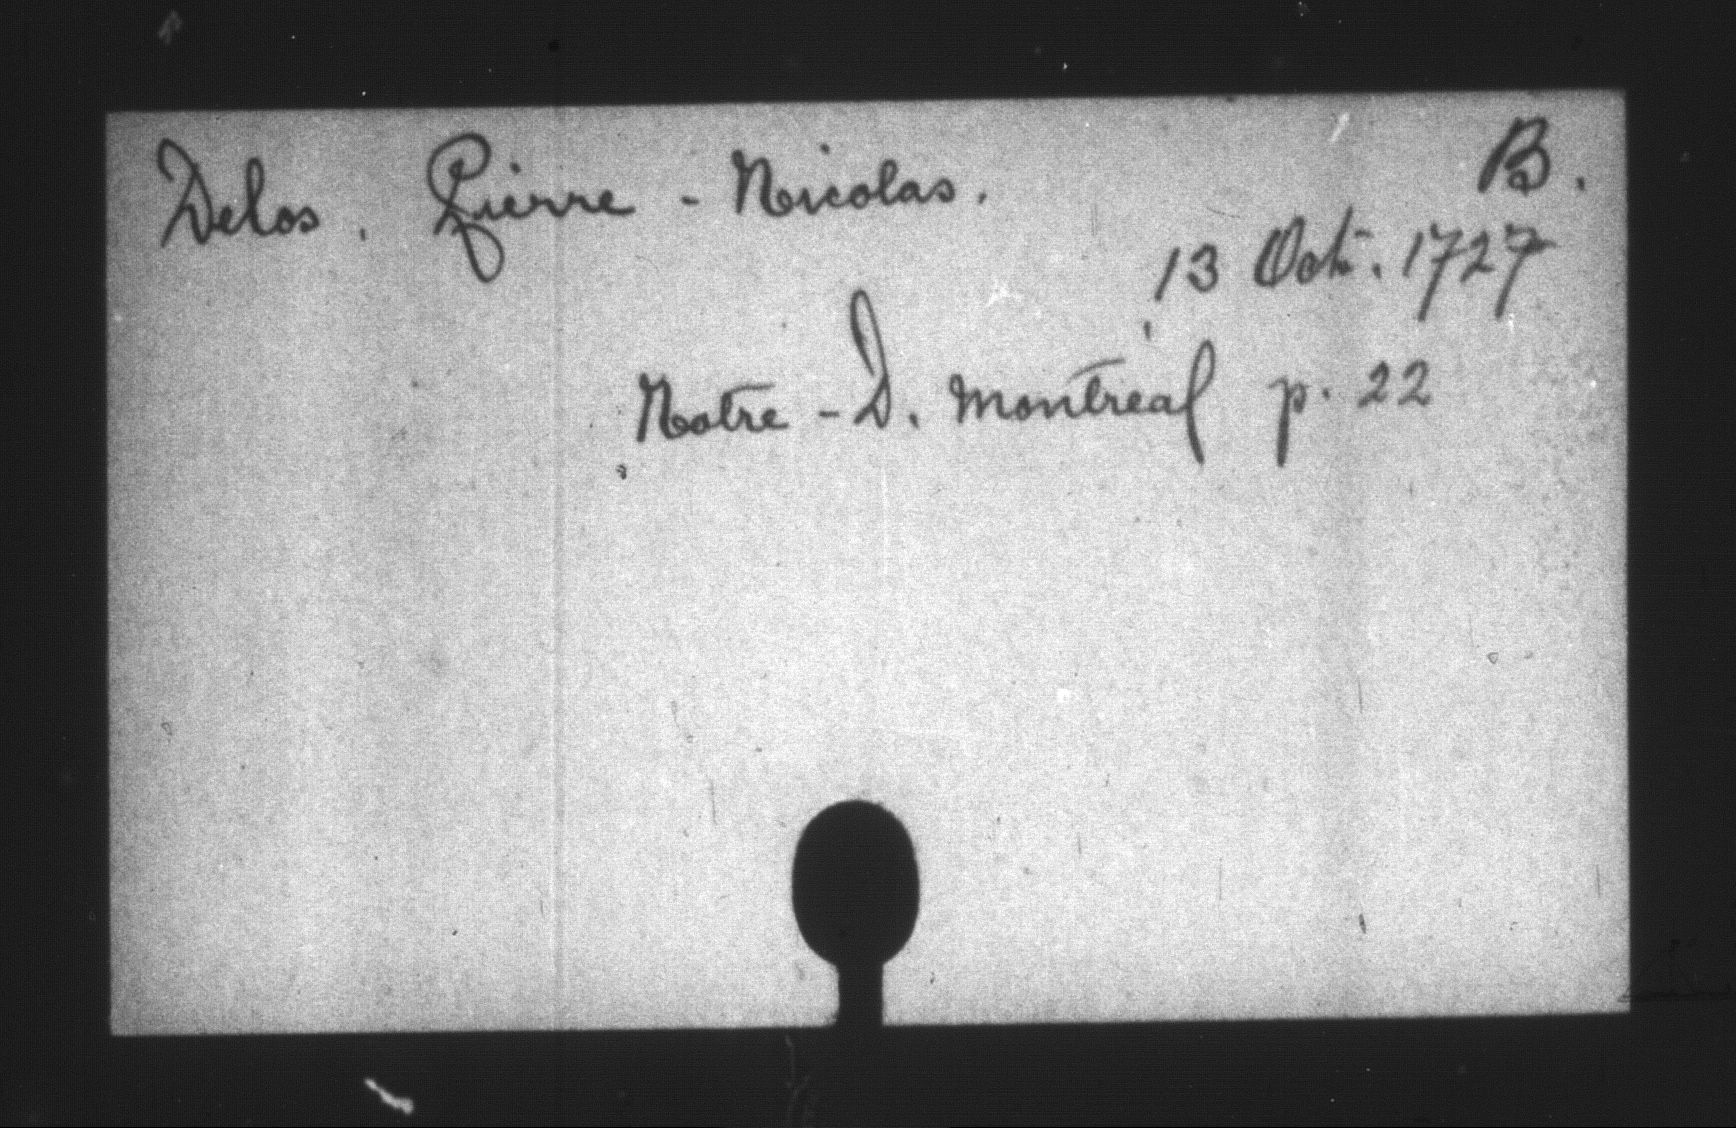 Delos. Pierre - Nicolas. B.
13 Oct. 1727
Notre - D. Montréal p. 22